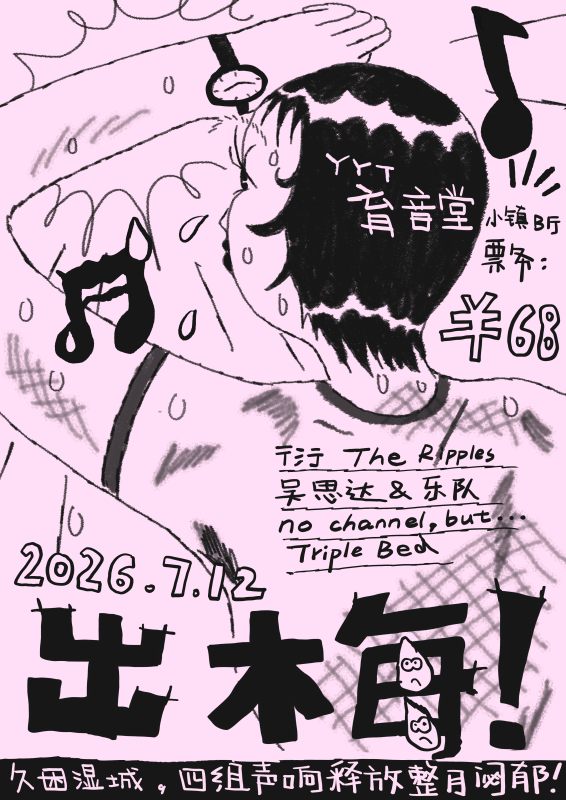 YYT
育音堂
小镇B厅
票爷：
¥68
衍 The Ripples
吴思达 & 乐队
no channel, but...
Triple Bed
2026.7.12
出梅!
久困湿城，四组声响释放整月闷郁!